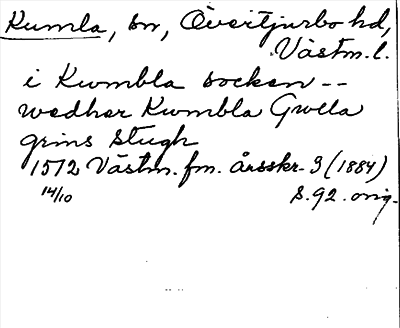 Kumla, sn, Övertjurbo hd,
Västm. l.
i Kwmbla socken --
wedher Kwmbla Gwlla
grins Stugh
1572 Västm. fm. årsskr. 3 (1884)
14/10 s. 92. orig.